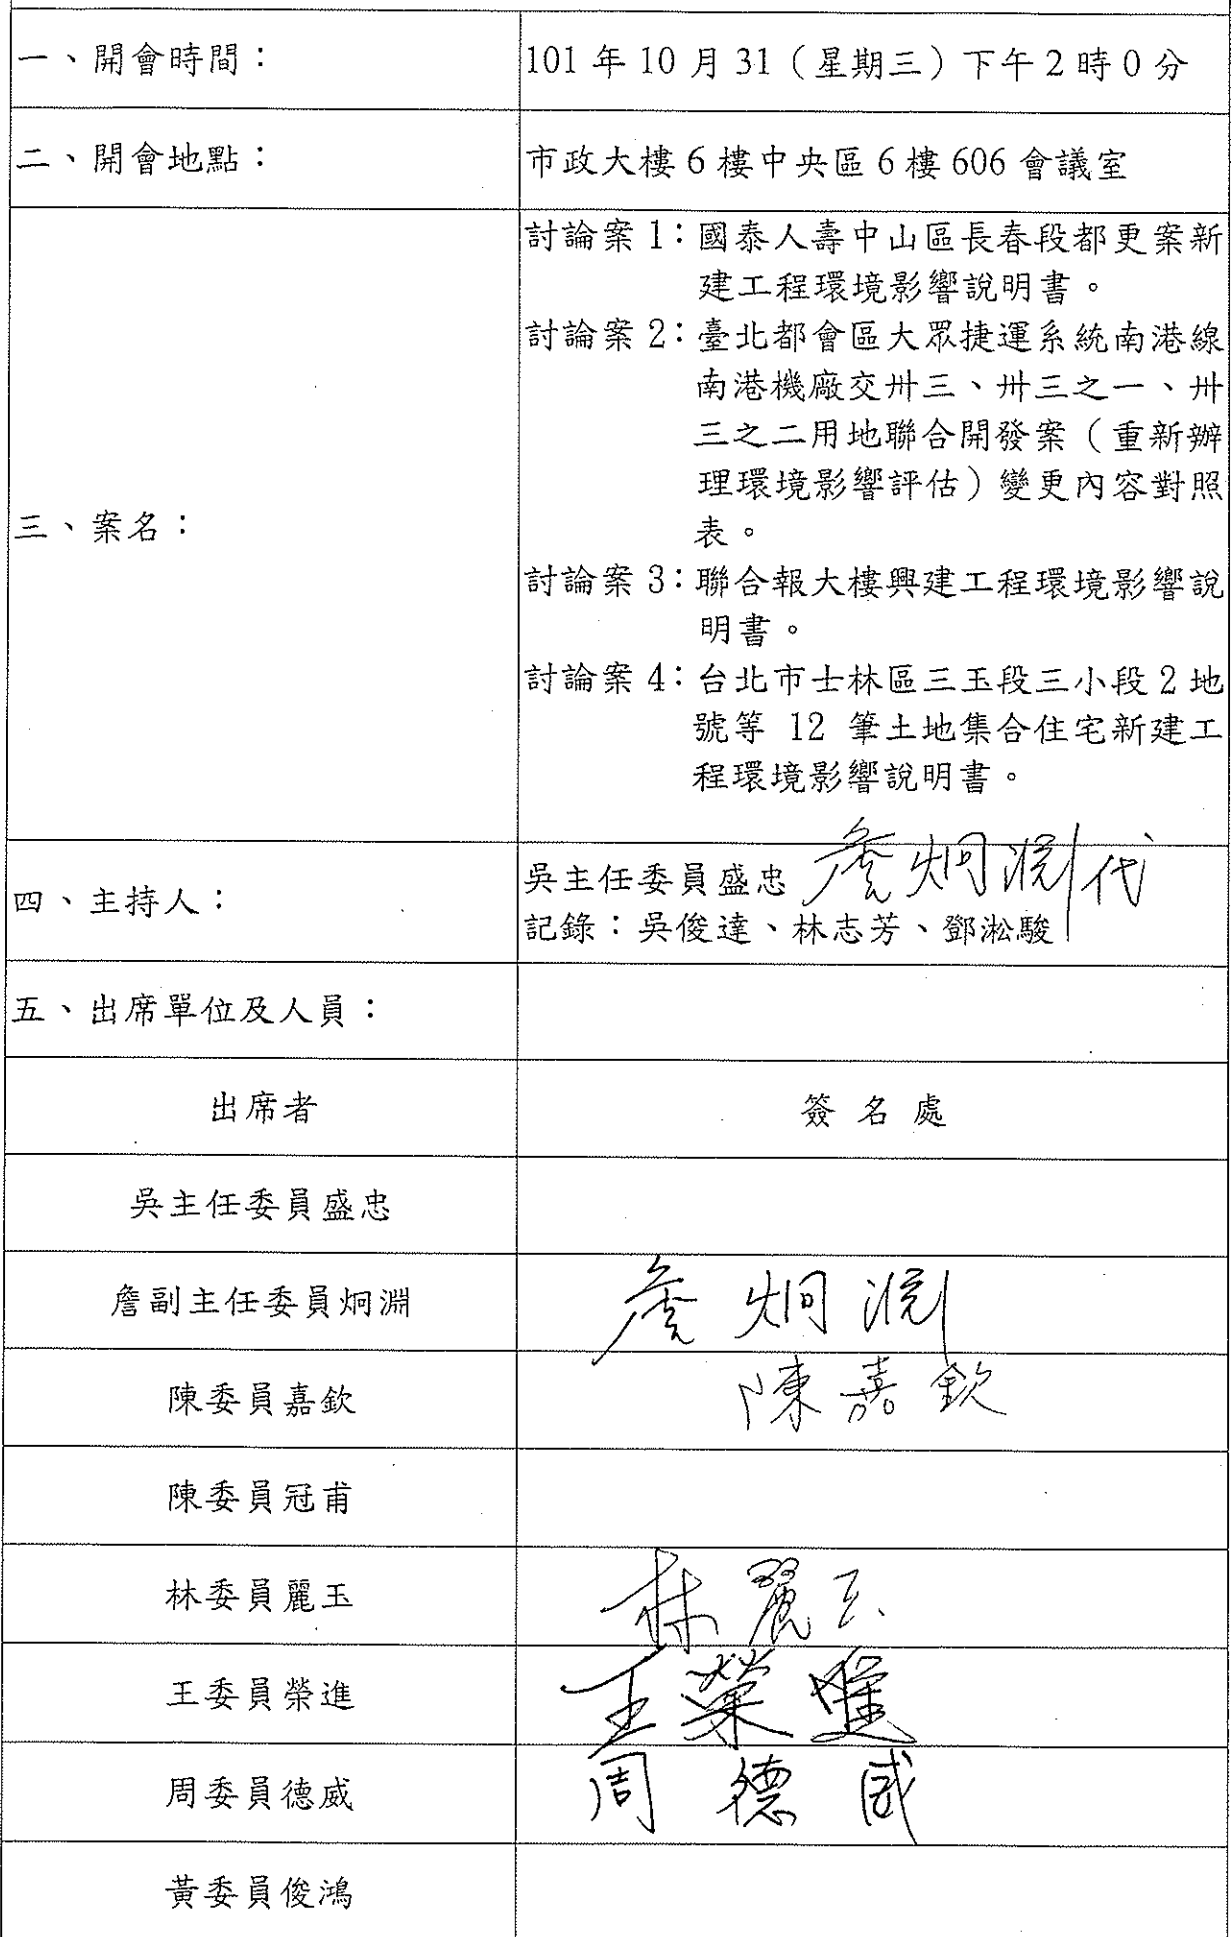 一、開會時間：
101 年 10 月 31（星期三）下午 2 時 0 分
二、開會地點：
市政大樓 6 樓中央區 6 樓 606 會議室
三、案名：
討論案 1：國泰人壽中山區長春段都更案新
建工程環境影響說明書。
討論案 2：臺北都會區大眾捷運系統南港線
南港機廠交卅三、卅三之一、卅
三之二用地聯合開發案（重新辦
理環境影響評估）變更內容對照
表。
討論案 3：聯合報大樓興建工程環境影響說
明書。
討論案 4：台北市士林區三玉段三小段 2 地
號等 12 筆土地集合住宅新建工
程環境影響說明書。
四、主持人：
吳主任委員盛忠 詹炯淵代
記錄：吳俊達、林志芳、鄧淞駿
五、出席單位及人員：
出席者 簽名處
吳主任委員盛忠
詹副主任委員炯淵 詹炯淵
陳委員嘉欽 陳嘉欽
陳委員冠甫
林委員麗玉 林麗玉
王委員榮進 王榮進
周委員德威 周德威
黃委員俊鴻